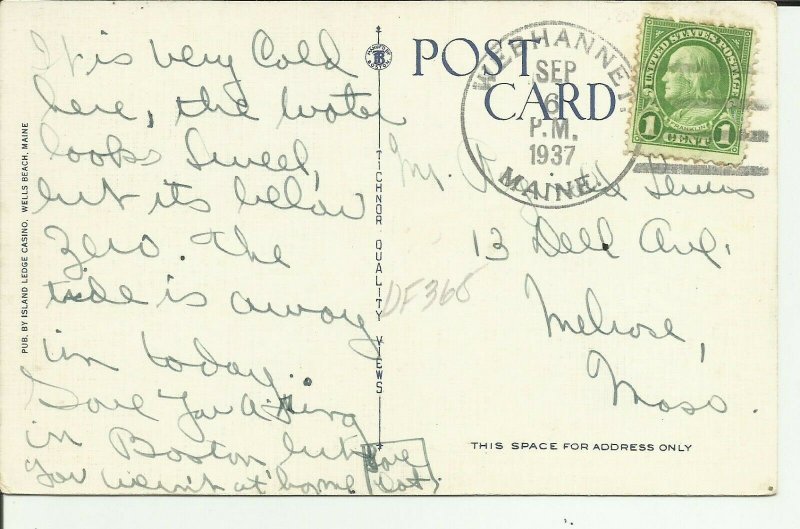 It is very Cold
here, the water
looks Swell,
but its below
Zero. The
tide is away
in today.
Gave You a Ring
in Boston but
You weren't at home
Dot.
PUB. BY ISLAND LEDGE CASINO, WELLS BEACH, MAINE
TICHNOR QUALITY VIEWS
POST
CARD
WEBHANNET
SEP
6
P.M.
1937
MAINE.
UNITED STATES POSTAGE
FRANKLIN
1 CENT 1
Mr.
13 Dell Ave,
Melrose,
Mass.
DF365
THIS SPACE FOR ADDRESS ONLY